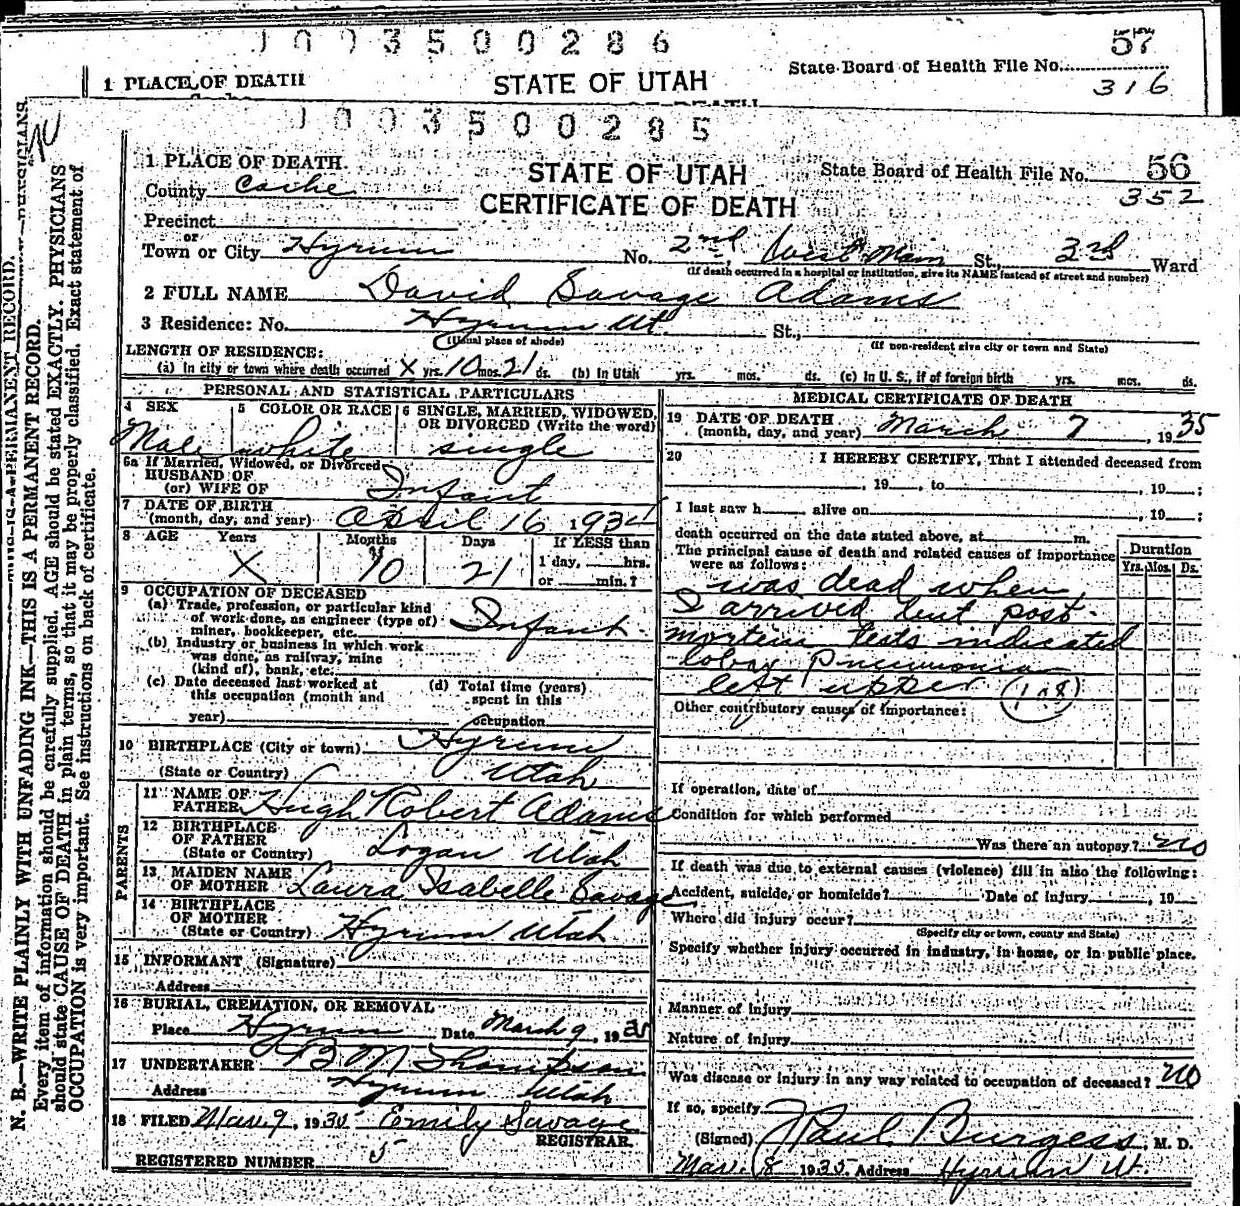 1003500286
57
1 PLACE OF DEATH STATE OF UTAH State Board of Health File No.
316
1003500285
1 PLACE OF DEATH STATE OF UTAH State Board of Health File No. 56
County Cache CERTIFICATE OF DEATH 352
Precinct
or
Town or City Hyrum No. 2nd West Main St., 3rd Ward
(If death occurred in a hospital or institution, give its NAME instead of street and number)
2 FULL NAME David Savage Adams
3 Residence: No. Hyrum Ut. St.,
(Usual place of abode) (If non-resident give city or town and State)
LENGTH OF RESIDENCE:
(a) In city or town where death occurred X yrs. 10 mos. 21 ds. (b) In Utah yrs. mos. ds. (c) In U. S., if of foreign birth yrs. mos. ds.
PERSONAL AND STATISTICAL PARTICULARS
4 SEX 5 COLOR OR RACE 6 SINGLE, MARRIED, WIDOWED, OR DIVORCED (Write the word)
Male white single
6a If Married, Widowed, or Divorced
HUSBAND OF
(or) WIFE OF Infant
7 DATE OF BIRTH
(month, day, and year) April 16 1934
8 AGE Years Months Days If LESS than
X 10 21 1 day, hrs.
or min.?
9 OCCUPATION OF DECEASED
(a) Trade, profession, or particular kind
of work done, as engineer (type of)
miner, bookkeeper, etc. Infant
(b) Industry or business in which work
was done, as railway, mine
(kind of), bank, etc.
(c) Date deceased last worked at
this occupation (month and
year)
(d) Total time (years)
spent in this
occupation
10 BIRTHPLACE (City or town) Hyrum
(State or Country) Utah
PARENTS
11 NAME OF
FATHER Hugh Robert Adams
12 BIRTHPLACE
OF FATHER
(State or Country) Logan Utah
13 MAIDEN NAME
OF MOTHER Laura Isabelle Savage
14 BIRTHPLACE
OF MOTHER
(State or Country) Hyrum Utah
15 INFORMANT (Signature)
Address
16 BURIAL, CREMATION, OR REMOVAL
Place Hyrum Date March 9, 1935
17 UNDERTAKER B M Thompson
Address Hyrum Utah
18 FILED Mar. 9 1935 Emily Savage
REGISTRAR
REGISTERED NUMBER 5
MEDICAL CERTIFICATE OF DEATH
19 DATE OF DEATH
(month, day, and year) March 7, 1935
20 I HEREBY CERTIFY, That I attended deceased from
, 19 , to , 19 ;
I last saw h alive on , 19 ;
death occurred on the date stated above, at m.
The principal cause of death and related causes of importance
were as follows:
Duration
Yrs. Mos. Ds.
was dead when
I arrived but post-
mortim tests indicated
lobar Pneumonia
left upper (108)
Other contributory causes of importance:
If operation, date of
Condition for which performed
Was there an autopsy? no
If death was due to external causes (violence) fill in also the following:
Accident, suicide, or homicide? Date of injury , 19
Where did injury occur?
(Specify city or town, county and State)
Specify whether injury occurred in industry, in home, or in public place.
Manner of injury
Nature of injury
Was disease or injury in any way related to occupation of deceased? no
If so, specify
(Signed) Paul Burgess, M. D.
Mar. 8 1935 Address Hyrum Ut.
N. B.—WRITE PLAINLY WITH UNFADING INK—THIS IS A PERMANENT RECORD.
Every item of information should be carefully supplied. AGE should be stated EXACTLY. PHYSICIANS
should state CAUSE OF DEATH in plain terms, so that it may be properly classified. Exact statement of
OCCUPATION is very important. See instructions on back of certificate.